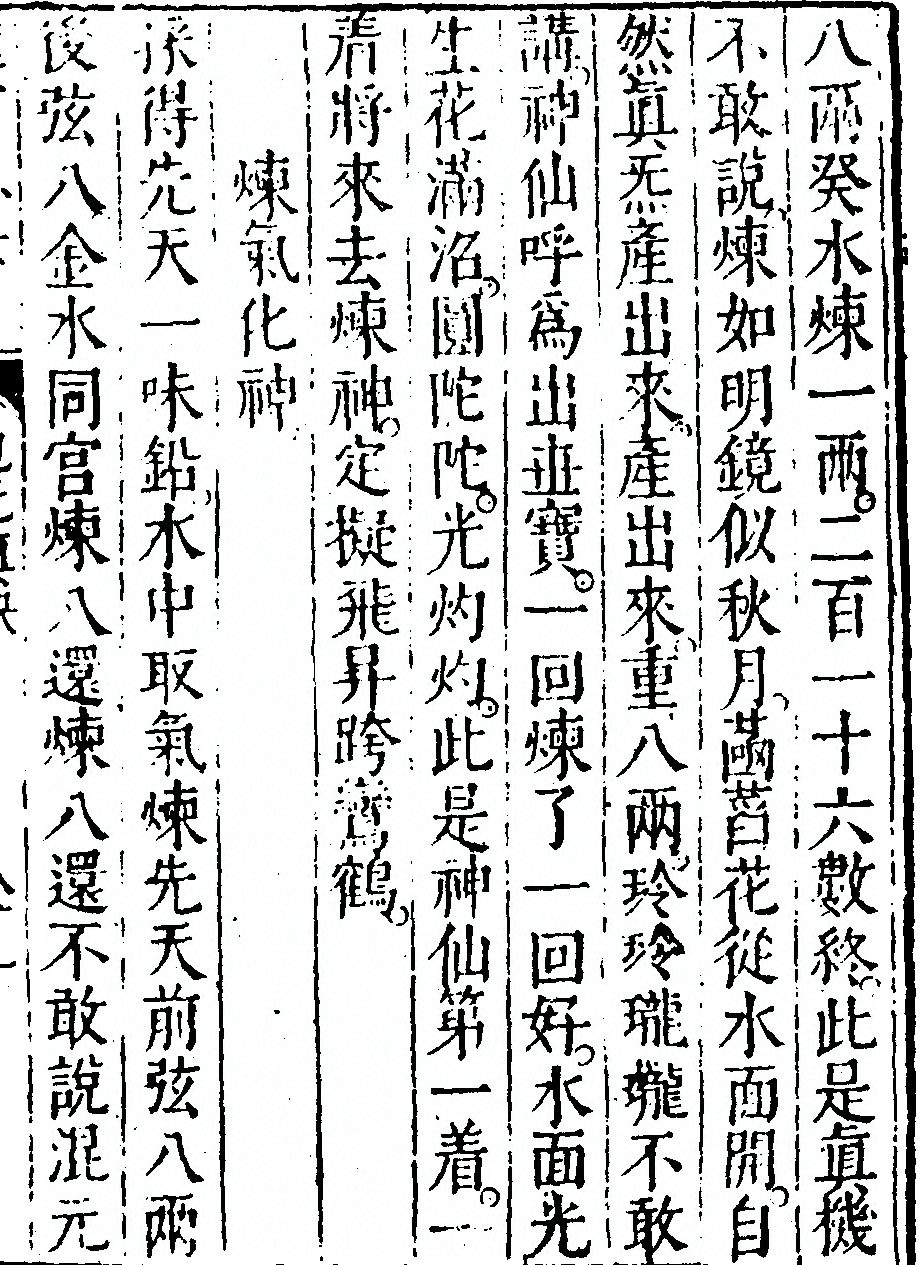 八兩癸水煉一兩。二百一十六數終此是眞機
不敢說煉如明鏡似秋月菡萏花從水面開自
然眞炁產出來產出來重八兩玲玲瓏瓏不敢
講神仙呼爲出世寶。一回煉了一回好水面光
生花滿沼圓陀陀。光灼灼。此是神仙第一着。一
着將來去煉神定擬飛昇跨鸞鶴
煉氣化神
採得先天一味鉛水中取氣煉先天前弦八兩
後弦八金水同宮煉八還煉八還不敢說混元